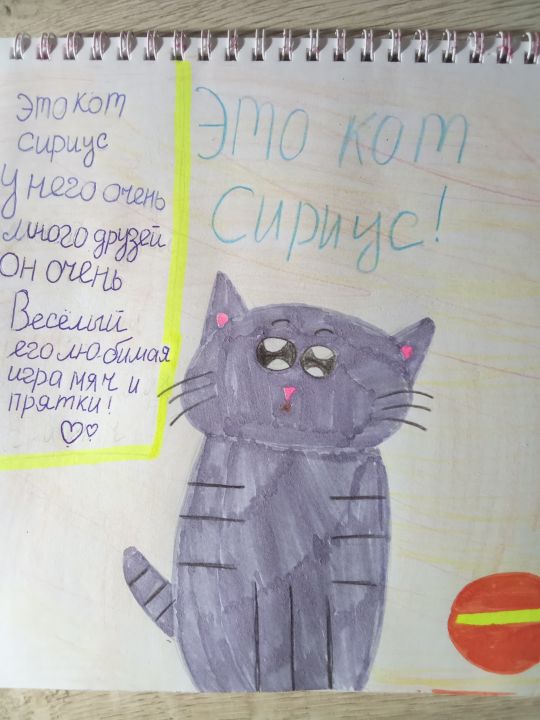 Это кот
сириус
У него очень
много друзей
Он очень
Весёлый
его любимая
игра мяч и
прятки!
Это кот
Сириус!